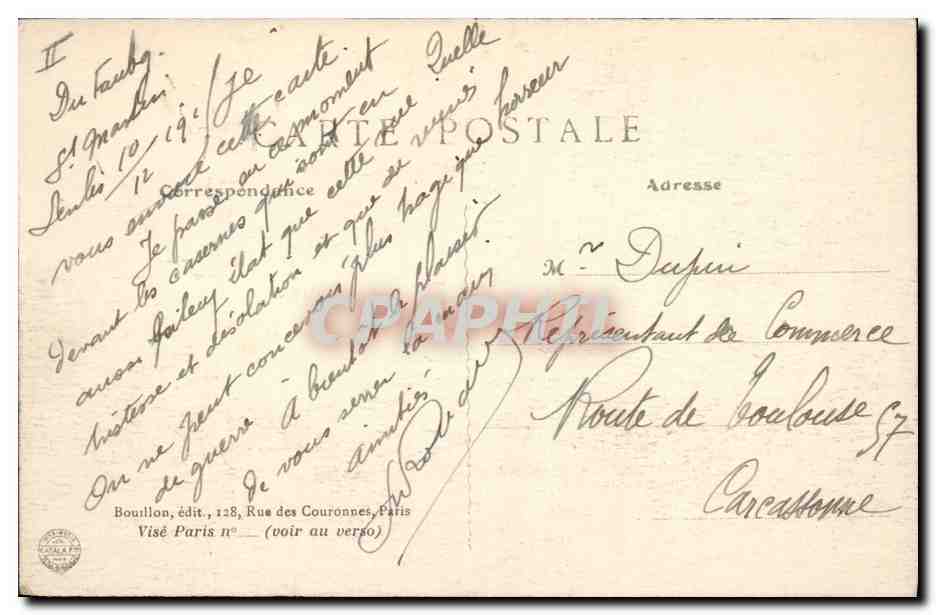 II
Du Faubg
St Martin
Senlis 10/12 191 / Je
vous envoie cette carte
Je passe en ce moment
devant les casernes qui sont en Quelle
aussi état que cette rue
tristesse et désolation et que de requis
On ne peut concevoir plus tragique horreur
de guerre à bientôt le plaisir
de vous serrer la main
amitiés
CARTE POSTALE
Correspondance
Adresse
Mr Dupin
Représentant de Commerce
Route de Toulouse 57
Carcassonne
Bouillon, édit., 128, Rue des Couronnes, Paris
Visé Paris no ___ (voir au verso)
CATALA
CPAPHIL